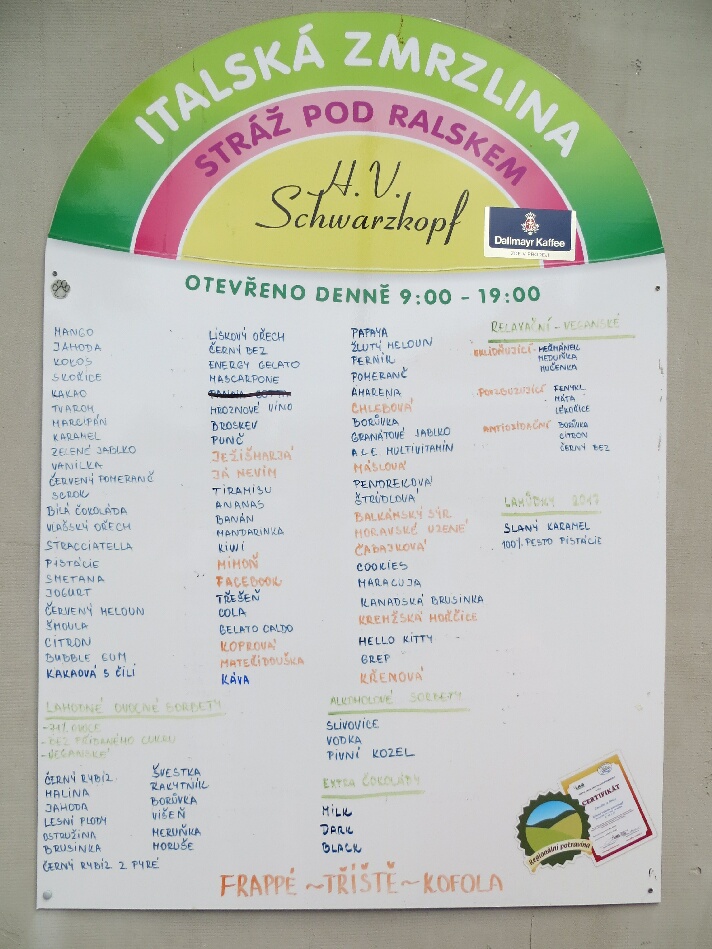 ITALSKÁ ZMRZLINA
STRÁŽ POD RALSKEM
H.V.
Schwarzkopf
Dallmayr Kaffee
ZDE V PRODEJI
OTEVŘENO DENNĚ 9:00 - 19:00
MANGO
JAHODA
KOKOS
SKOŘICE
KAKAO
TVAROH
MARCIPÁN
KARAMEL
ZELENÉ JABLKO
VANILKA
ČERVENÝ POMERANČ
BÍLÁ ČOKOLÁDA
VLAŠSKÝ OŘECH
STRACCIATELLA
PISTÁCIE
SMETANA
JOGURT
ČERVENÝ MELOUN
ŠMOULA
CITRON
BUBBLE GUM
KAKAOVÁ S ČILÍ
LÍSKOVÝ OŘECH
ČERNÝ BEZ
ENERGY GELATO
MASCARPONE
HROZNOVÉ VÍNO
BROSKEV
PUNČ
JEŽIŠMARJÁ
JÁ NEVIM
TIRAMISU
ANANAS
BANÁN
MANDARINKA
KIWI
MIMOŇ
FACEBOOK
TŘEŠEŇ
COLA
GELATO CALDO
KOPROVÁ
MATEŘÍDOUŠKA
KÁVA
PAPAYA
ŽLUTÝ MELOUN
PERNÍK
POMERANČ
AMARENA
CHLEBOVÁ
BORŮVKA
GRANÁTOVÉ JABLKO
A.C.E. MULTIVITAMÍN
MÁSLOVÁ
PENDREKOVÁ
ŠTRŮDLOVÁ
BALKÁNSKÝ SÝR
MORAVSKÉ UZENÉ
ČABAJKOVÁ
COOKIES
MARACUJA
KANADSKÁ BRUSINKA
KREMŽSKÁ HOŘČICE
HELLO KITTY
GREP
KŘENOVÁ
RELAXAČNÍ - VEGANSKÉ
UKLIDŇUJÍCÍ - HEŘMÁNEK
MEDUŇKA
MUČENKA
POVZBUZUJÍCÍ FENYKL
MÁTA
LÉKOŘICE
ANTIOXIDAČNÍ BORŮVKA
CITRON
ČERNÝ BEZ
LAHŮDKY 2017
SLANÝ KARAMEL
100% PESTO PISTÁCIE
LAHODNÉ OVOCNÉ SORBETY
-71% OVOCE
-BEZ PŘIDANÉHO CUKRU
-VEGANSKÉ
ČERNÝ RYBÍZ
MALINA
JAHODA
LESNÍ PLODY
OSTRUŽINA
BRUSINKA
ČERNÝ RYBÍZ Z PYRÉ
ŠVESTKA
RAKYTNÍK
BORŮVKA
VIŠEŇ
MERUŇKA
MORUŠE
ALKOHOLOVÉ SORBETY
SLIVOVICE
VODKA
PIVNÍ KOZEL
EXTRA ČOKOLÁDY
MILK
DARK
BLACK
FRAPPÉ ~TŘÍŠTĚ~KOFOLA
Regionální potravina
CERTIFIKÁT